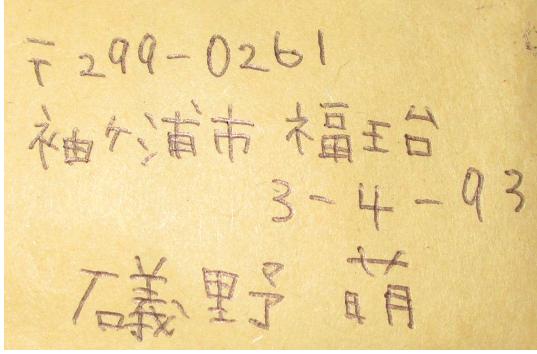 〒299-0261
袖ケ浦市 福王台
3-4-93
礒野 萌